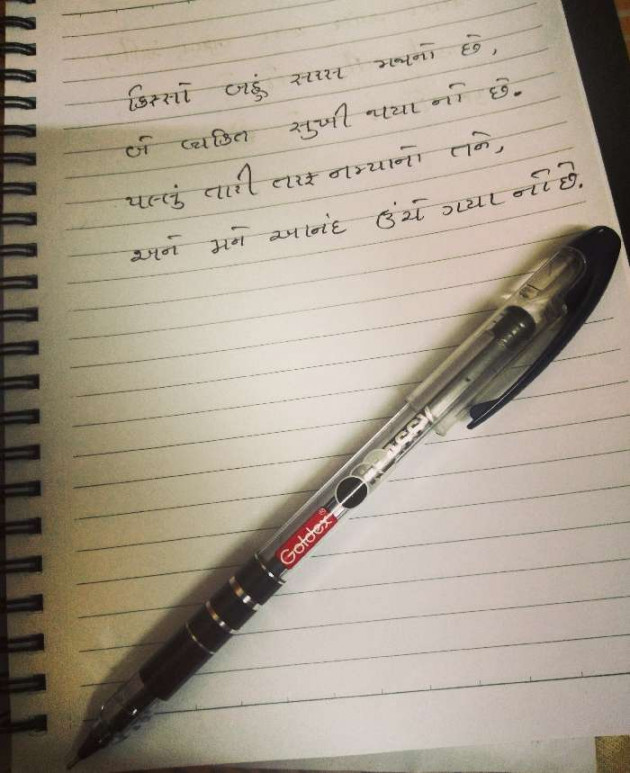 કિસ્સો બહું સરસ મજાનો છે,
બે વ્યકિત સુખી થયા નો છે.
પલ્લું તારી તરફ નમ્યાનો તને,
અને મને આનંદ ઉંચે ગયા નો છે.
Goldex
CLASSY